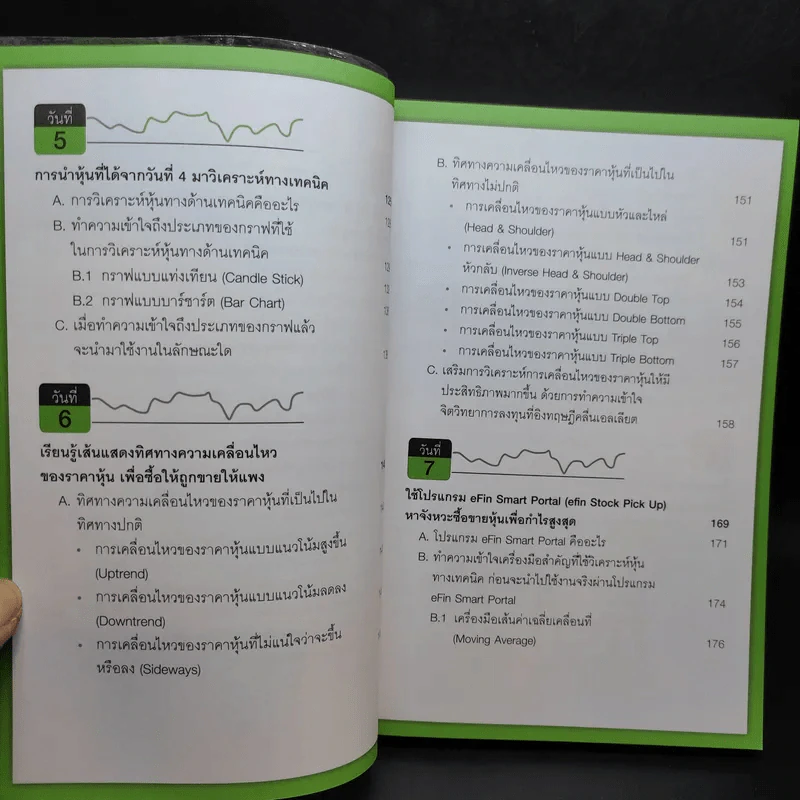 วันที่
5
การนำหุ้นที่ได้จากวันที่ 4 มาวิเคราะห์ทางเทคนิค
A. การวิเคราะห์หุ้นทางด้านเทคนิคคืออะไร
B. ทำความเข้าใจถึงประเภทของกราฟที่ใช้
ในการวิเคราะห์หุ้นทางด้านเทคนิค
B.1 กราฟแบบแท่งเทียน (Candle Stick)
B.2 กราฟแบบบาร์ชาร์ต (Bar Chart)
C. เมื่อทำความเข้าใจถึงประเภทของกราฟแล้ว
จะนำมาใช้งานในลักษณะใด
วันที่
6
เรียนรู้เส้นแสดงทิศทางความเคลื่อนไหว
ของราคาหุ้น เพื่อซื้อให้ถูกขายให้แพง
A. ทิศทางความเคลื่อนไหวของราคาหุ้นที่เป็นไปใน
ทิศทางปกติ
• การเคลื่อนไหวของราคาหุ้นแบบแนวโน้มสูงขึ้น
(Uptrend)
• การเคลื่อนไหวของราคาหุ้นแบบแนวโน้มลดลง
(Downtrend)
• การเคลื่อนไหวของราคาหุ้นที่ไม่แน่ใจว่าจะขึ้น
หรือลง (Sideways)
B. ทิศทางความเคลื่อนไหวของราคาหุ้นที่เป็นไปใน
ทิศทางไม่ปกติ 151
• การเคลื่อนไหวของราคาหุ้นแบบหัวและไหล่
(Head & Shoulder) 151
• การเคลื่อนไหวของราคาหุ้นแบบ Head & Shoulder
หัวกลับ (Inverse Head & Shoulder) 153
• การเคลื่อนไหวของราคาหุ้นแบบ Double Top 154
• การเคลื่อนไหวของราคาหุ้นแบบ Double Bottom 155
• การเคลื่อนไหวของราคาหุ้นแบบ Triple Top 156
• การเคลื่อนไหวของราคาหุ้นแบบ Triple Bottom 157
C. เสริมการวิเคราะห์การเคลื่อนไหวของราคาหุ้นให้มี
ประสิทธิภาพมากขึ้น ด้วยการทำความเข้าใจ
จิตวิทยาการลงทุนที่อิงทฤษฎีคลื่นเอลเลียต 158
วันที่
7
ใช้โปรแกรม eFin Smart Portal (efin Stock Pick Up)
หาจังหวะซื้อขายหุ้นเพื่อกำไรสูงสุด 169
A. โปรแกรม eFin Smart Portal คืออะไร 171
B. ทำความเข้าใจเครื่องมือสำคัญที่ใช้วิเคราะห์หุ้น
ทางเทคนิค ก่อนจะนำไปใช้งานจริงผ่านโปรแกรม
eFin Smart Portal 174
B.1 เครื่องมือเส้นค่าเฉลี่ยเคลื่อนที่
(Moving Average) 176